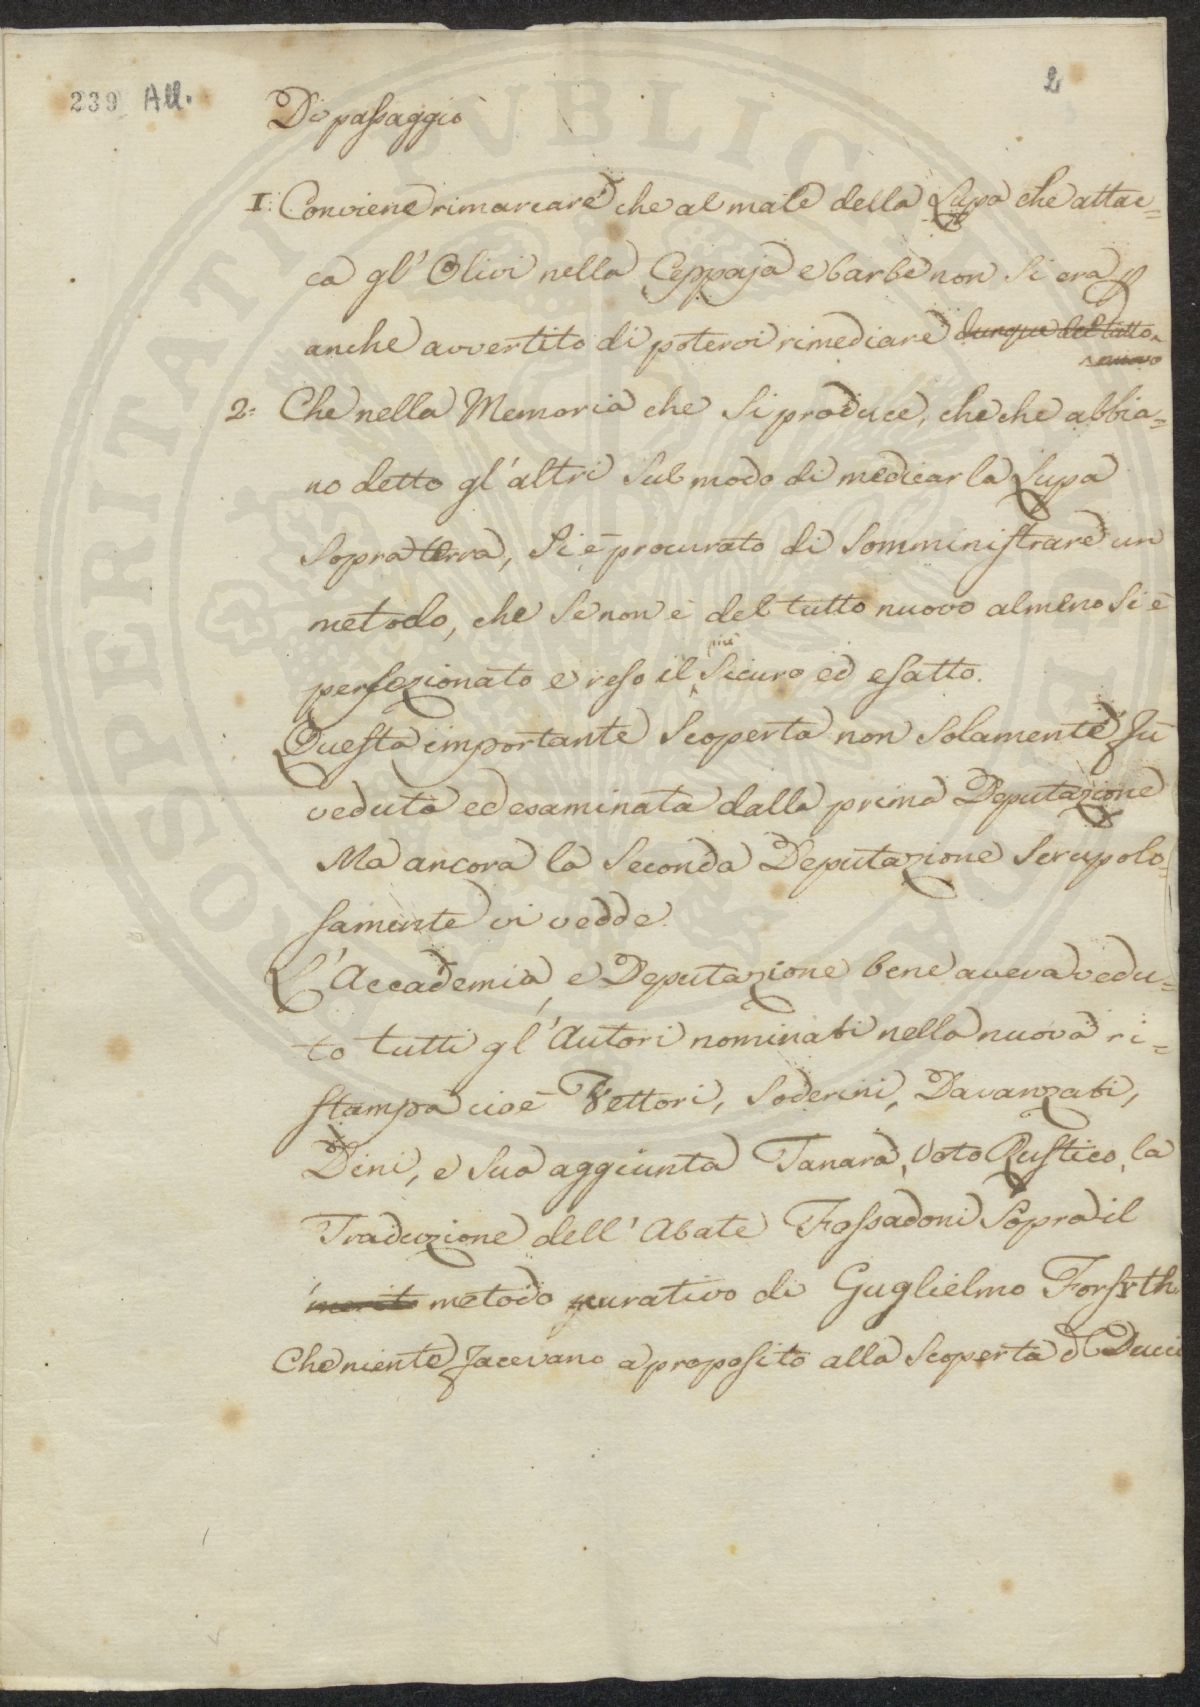 239 All.
2
Di passaggio
1: Conviene rimarcare che al male della Lupa che attac=
ca gl' Olivi nella Ceppaja e barbe non si era
anche avvertito di potervi rimediare dunque del tutto
nuovo
2: Che nella Memoria che si produce, che che abbia=
no detto gl' altri sul modo di medicar la Lupa
sopra terra, si è procurato di somministrare un
metodo, che se non è del tutto nuovo almeno si è
perfezionato e reso il più sicuro ed esatto.
Questa importante scoperta non solamente fù
veduta ed esaminata dalla prima Deputazione
Ma ancora la seconda Deputazione scrupolo=
samente vi vedde.
L' Accademia, e Deputazione bene aveva vedu=
to tutti gl' Autori nominati nella nuova ri=
stampa cioè Vettori, Soderini, Davanzati,
Dini, e sua aggiunta Tanara, Voto Rustico, la
Traduzione dell' Abate Fossadoni sopra il
merito metodo curativo di Guglielmo Forsyth
Che niente facevano a proposito alla scoperta d Ducci
PUBLICAE
PROSPERITATI